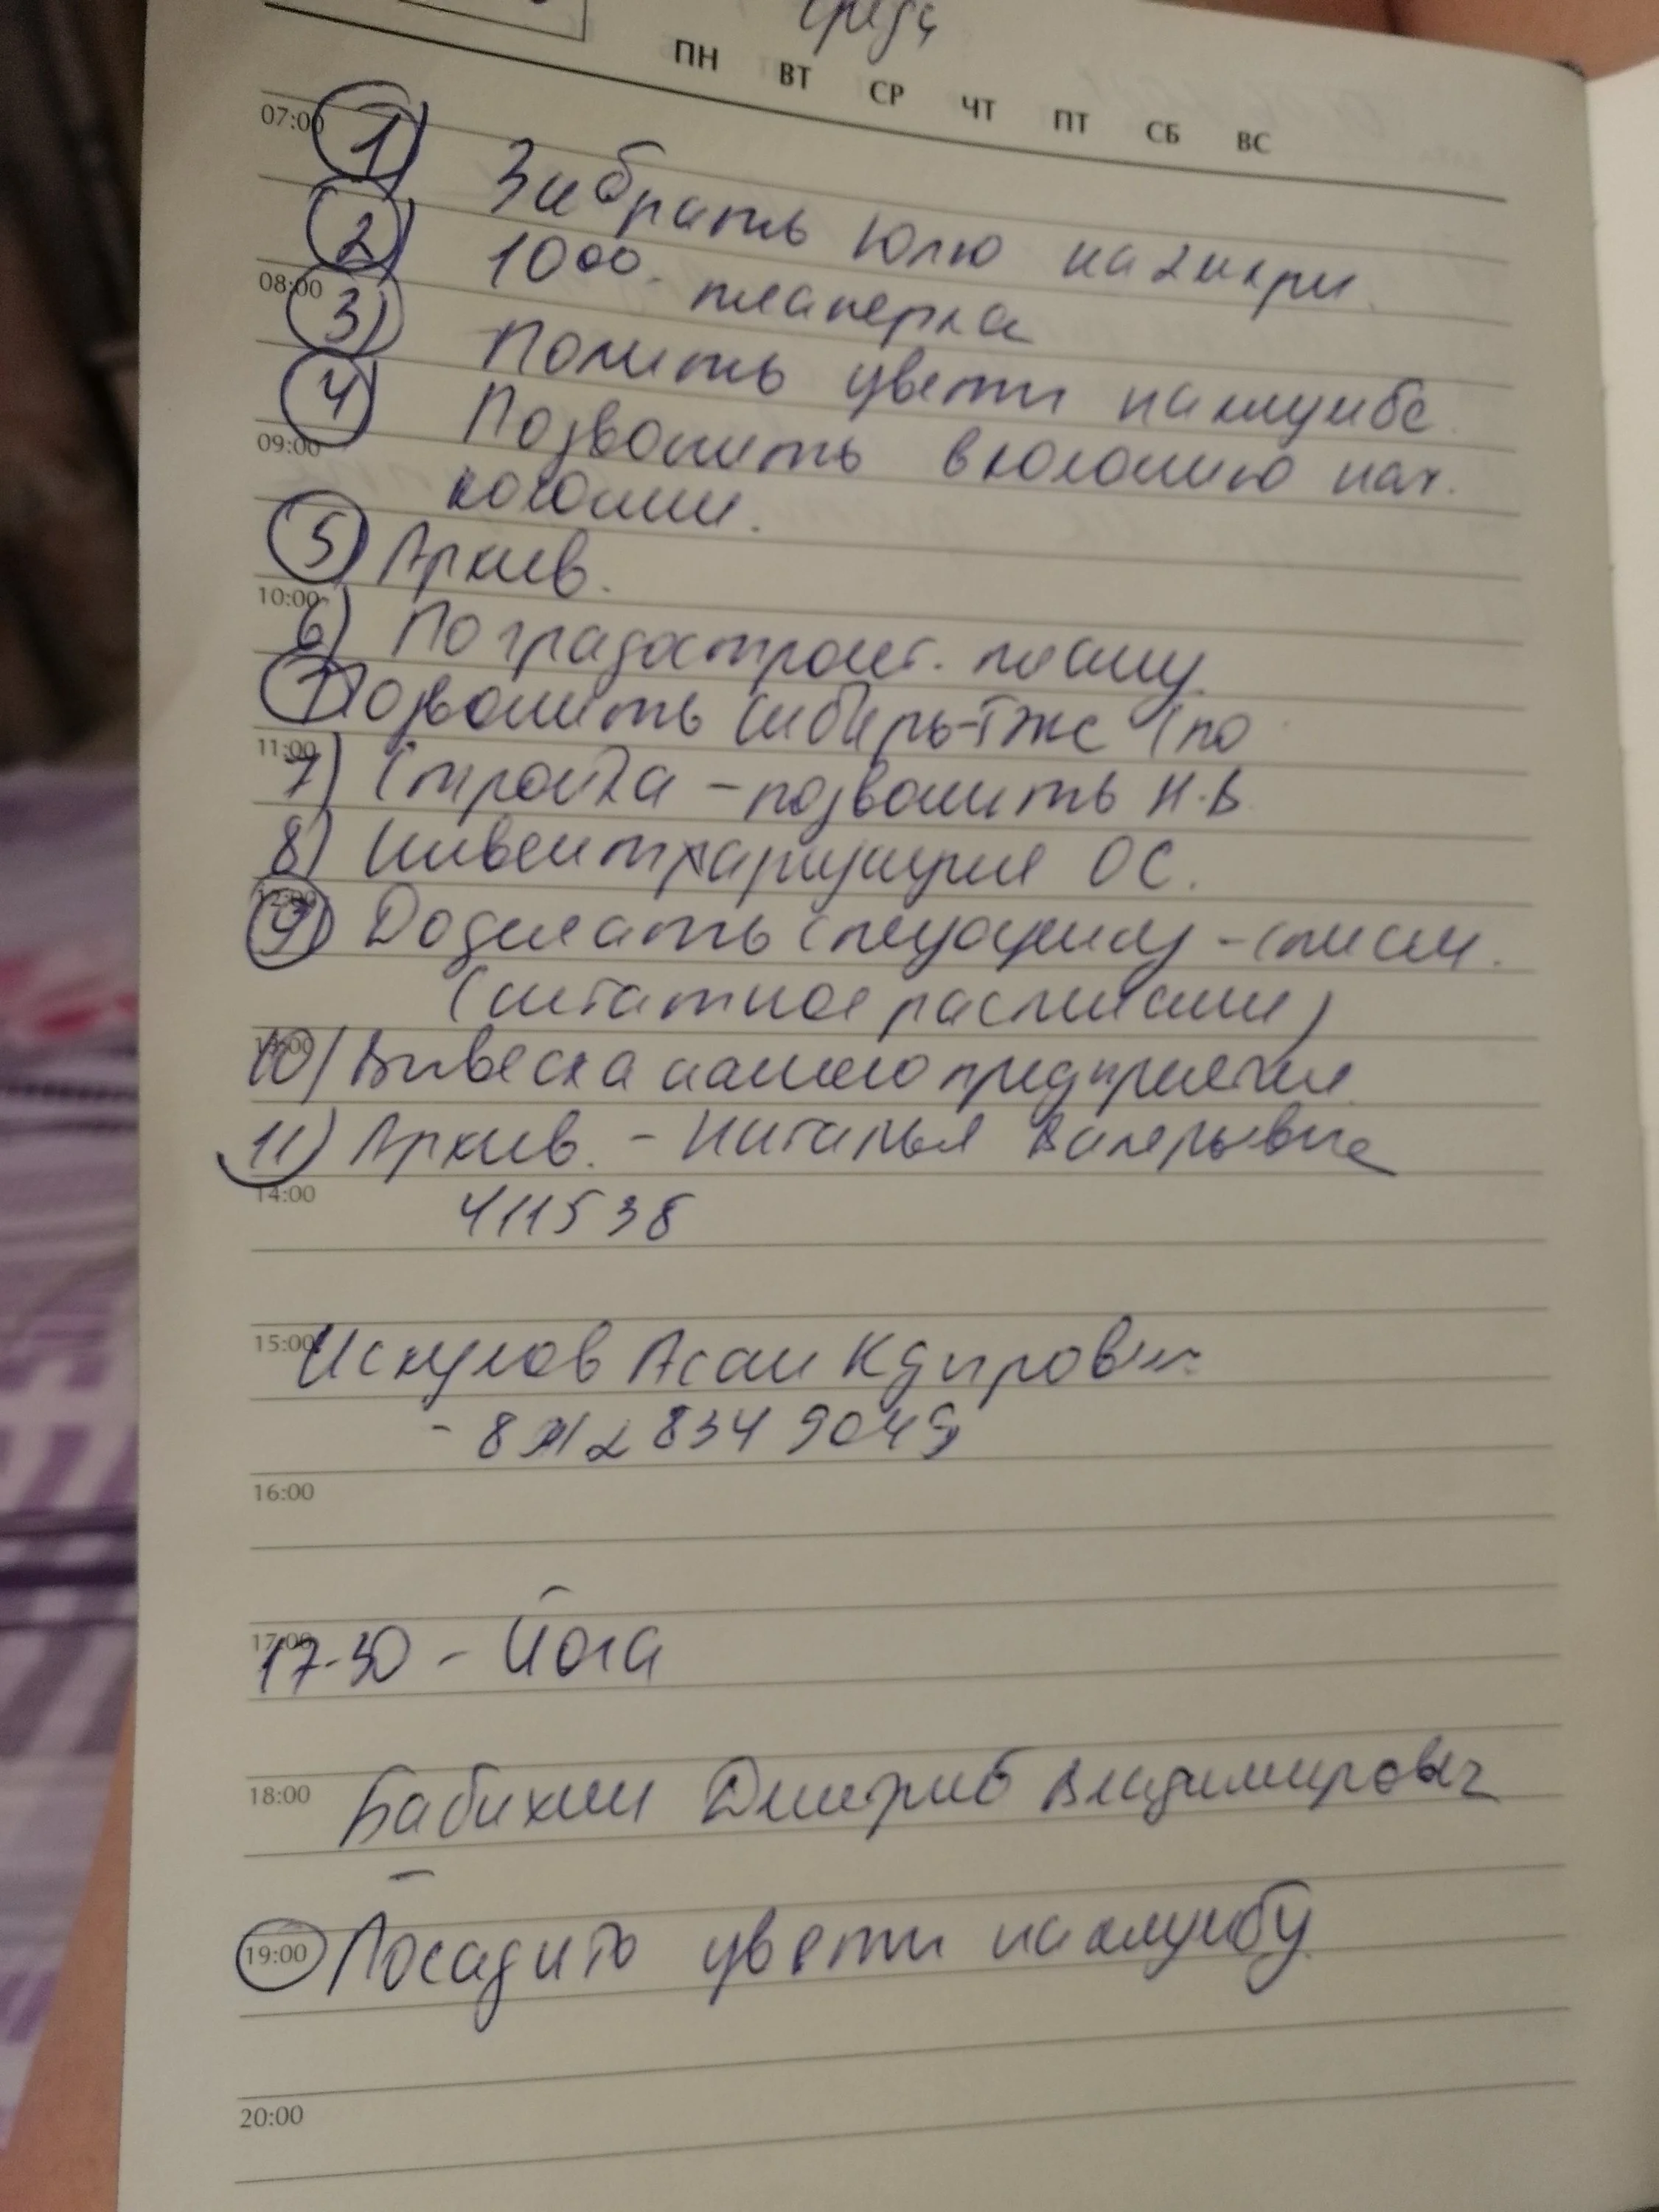 среда
ПН ВТ СР ЧТ ПТ СБ ВС
07:00 1) Забрать Юлю
2) 10⁰⁰- планерка
08:00
3) Полить цветы на клумбе.
4) Позвонить в колонию нач.
09:00
колонии.
5) Архив.
10:00
6) По градостроит. плану.
7) Позвонить Сибирь-Тжс (по
11:00
7) Стройка - позвонить Н.В.
8) Инвентаризация ОС.
12:00
9) Доделать спецоценку - списки.
(штатное расписание)
13:00
10) Вывеска нашего предприятия.
11) Архив. - Наталья Валерьевна
14:00
411538
15:00 Искулов Асан Кдирович
- 8 912 834 9049
16:00
17:00
17-30 - Йога
18:00 Бабихин Дмитрий Владимирович
19:00 Посадить цветы на клумбу.
20:00